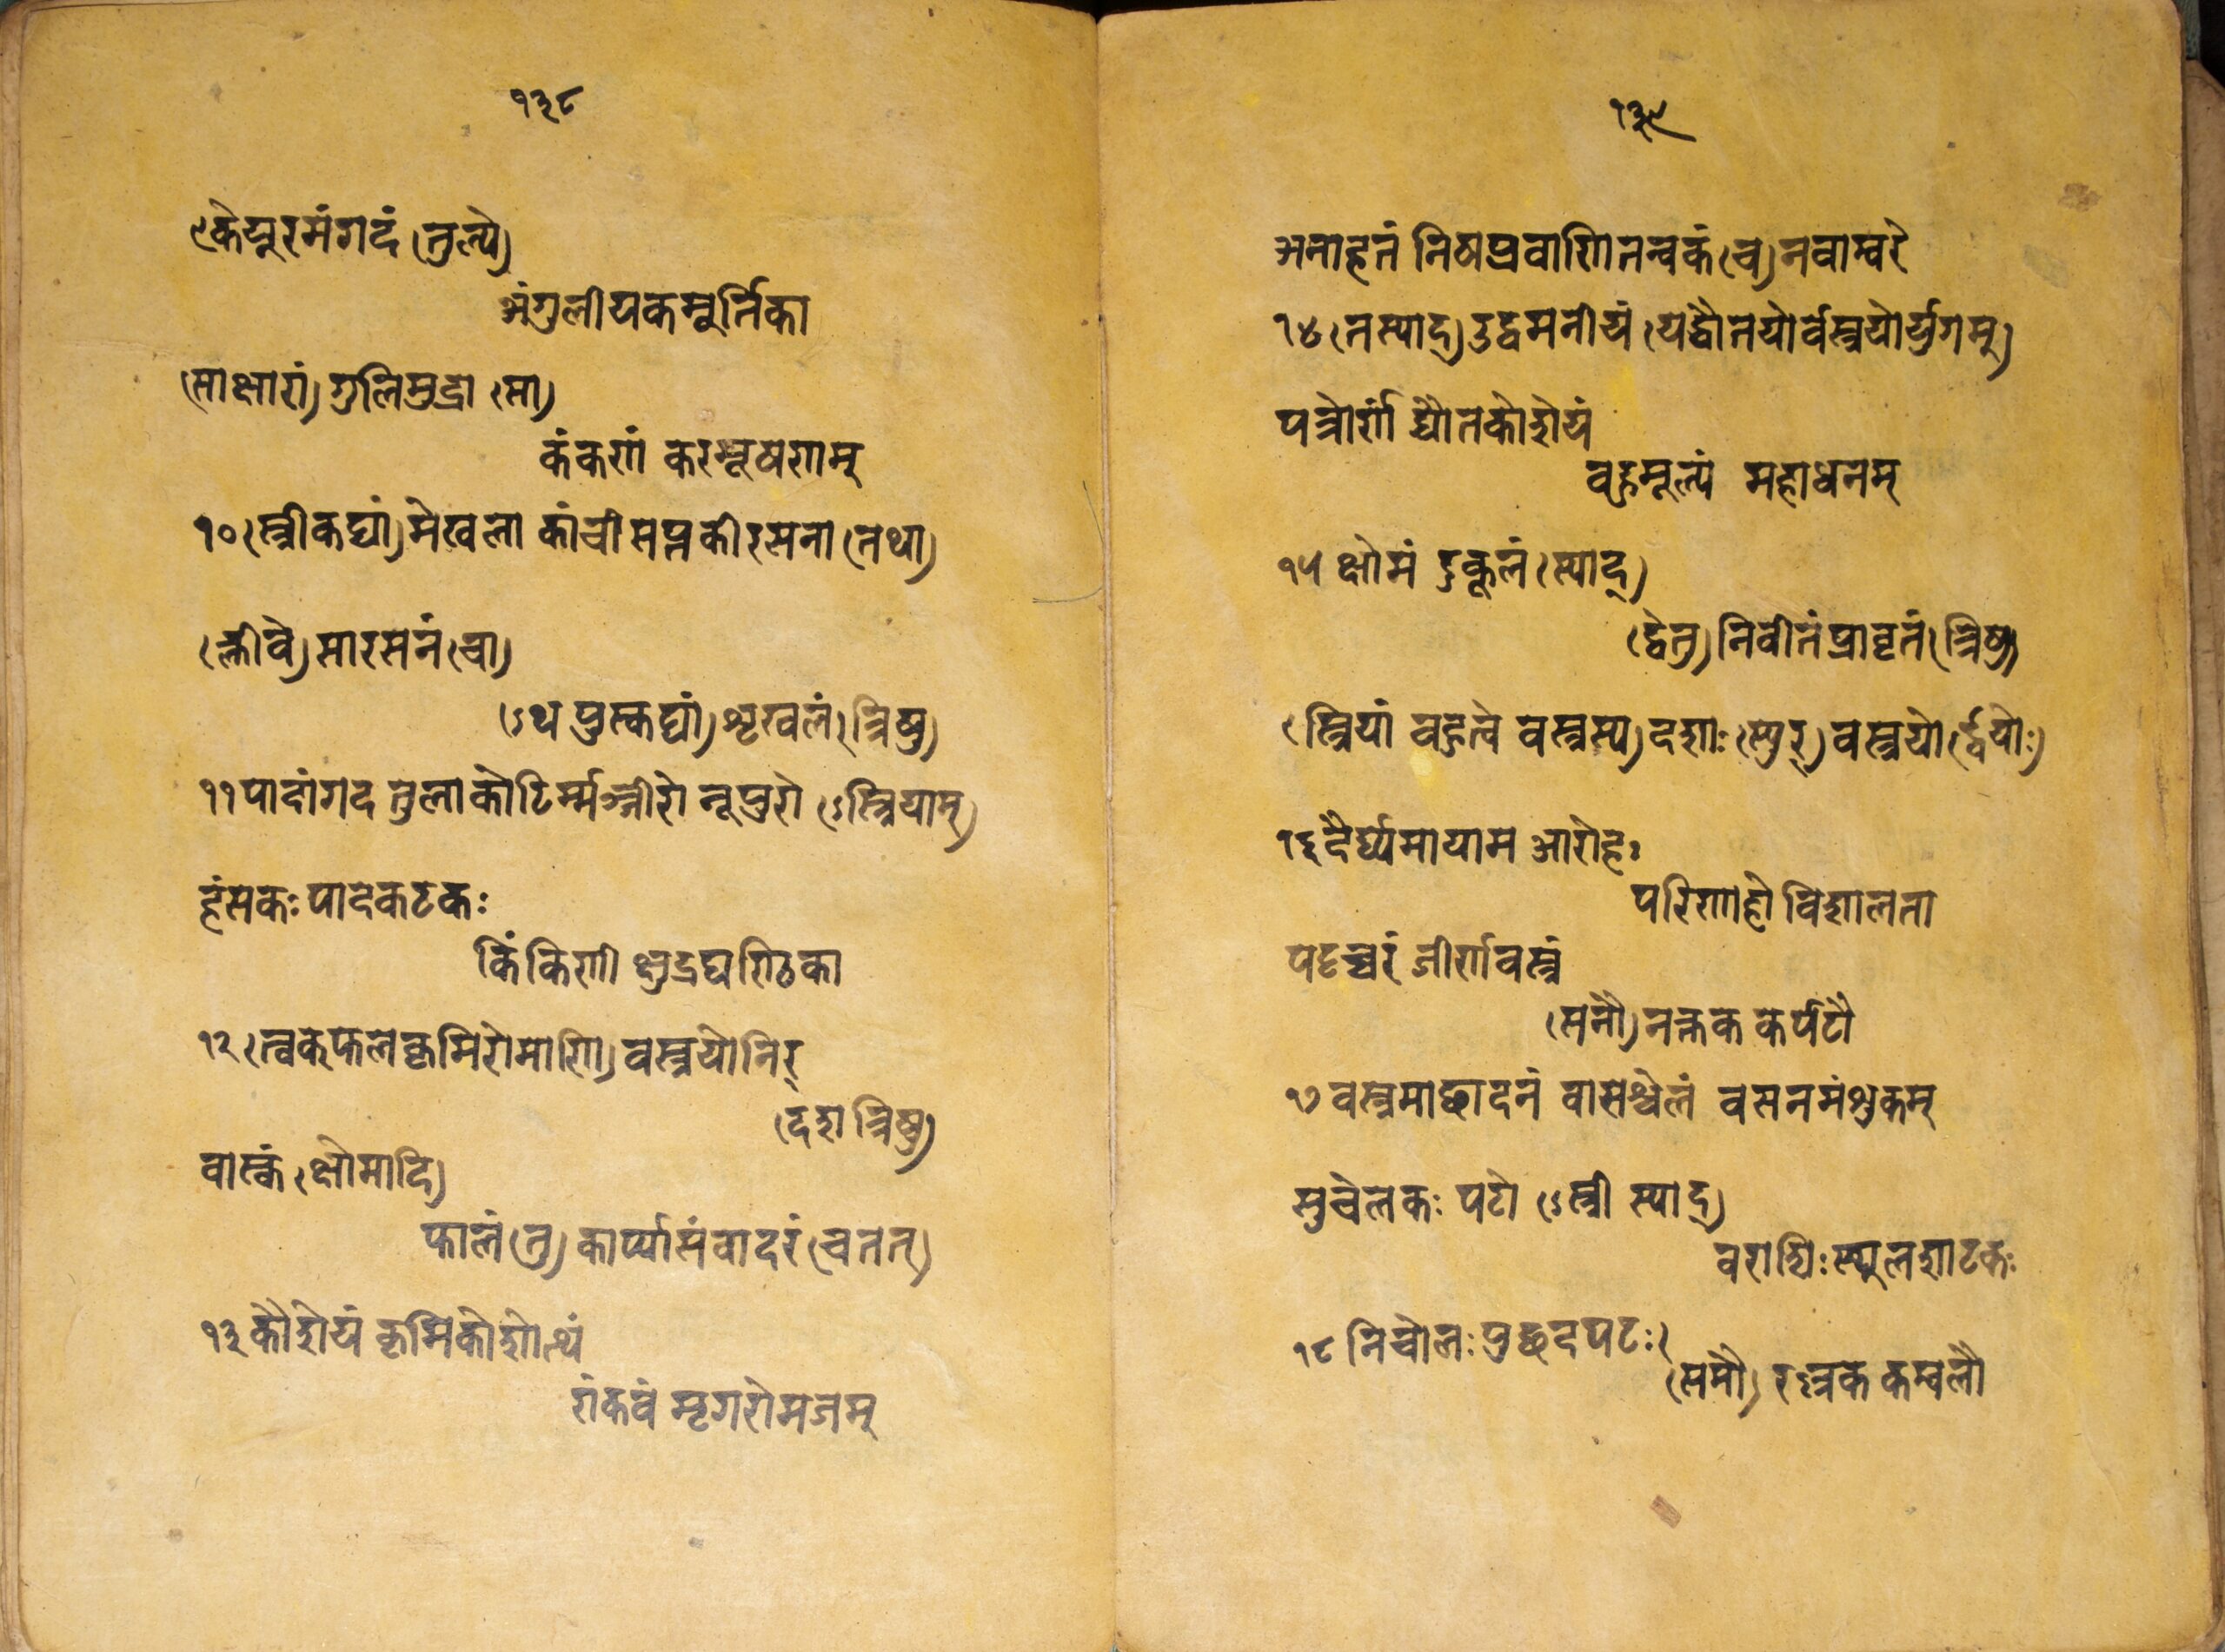 १३८
९केयूरमंगदं (तुल्ये)
अंगुलीयकमूर्मिका
(साक्षारां) गुलिमुद्रा (सा)
कंकणं करभूषणम्
१० (स्त्रीकट्यां) मेखला कांची सप्तकी रसना (तथा)
(क्लीवे) सारसनं (चा)
(ऽथ पुंस्कट्यां) शृंखलं (त्रिषु)
११ पादांगद तुलाकोटिर्म्मञ्जीरो नूपुरो (ऽस्त्रियाम्)
हंसकः पादकटकः
किंकिणी क्षुद्रघण्टिका
१२ (त्वक्फलकृमिरोमाणि) वस्त्रयोनिर्
(दश त्रिषु)
वाल्कं (क्षौमादि)
फालं (तु) कार्प्पासंवादरं (चतत्)
१३ कौशेयं कृमिकोशोत्थं
रांकवं मृगरोमजम्
१३९
अनाहतं निष्प्रवाणि तन्त्रकं (च) नवाम्वरे
१४ (तस्याद्) उद्गमनीयं (यद्धौतयोर्वस्त्रयोर्युगम्)
पत्रोर्णं धौतकौशेयं
वहुमूल्यं महाधनम्
१५ क्षौमं दुकूलं (स्याद्)
(द्वेतु) निवीतं प्रावृतं (त्रिषु)
(स्त्रियां वहुत्वे वस्त्रस्य) दशाः (स्युर्) वस्त्रयो (र्द्वयोः)
१६ दैर्घ्यमायाम आरोहः
परिणाहो विशालता
पटच्चरं जीर्णवस्त्रं
(समौ) नक्तक कर्पटौ
१७ वस्त्रमाछादनं वासश्चेलं वसनमंशुकम्
सुचेलकः पटो (ऽस्त्री स्याद्)
वराशिः स्थूलशाटकः
१८ निचोलः प्रछदपटः (
(समौ) रल्लक कम्वलौ